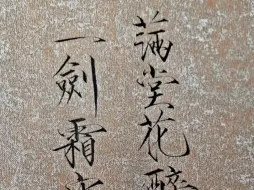 满堂花醉
一劍霜